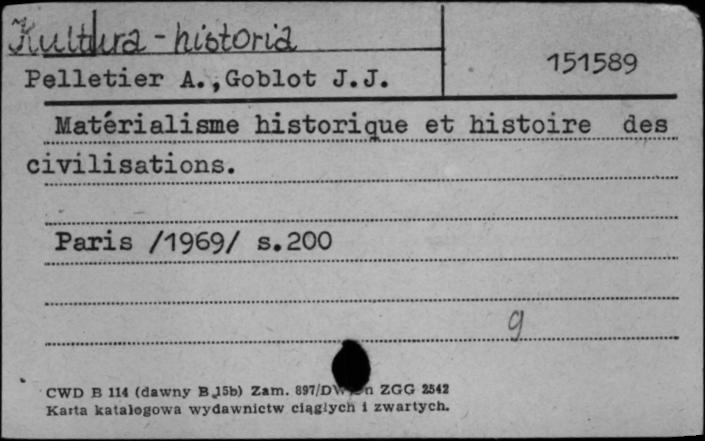 Kultura - historia
Pelletier A.,Goblot J.J.
151589
Matérialisme historique et histoire des
civilisations.
Paris /1969/ s.200
g
CWD B 114 (dawny B 15b) Zam. ZGG 2542
Karta katalogowa wydawnictw ciągłych i zwartych.